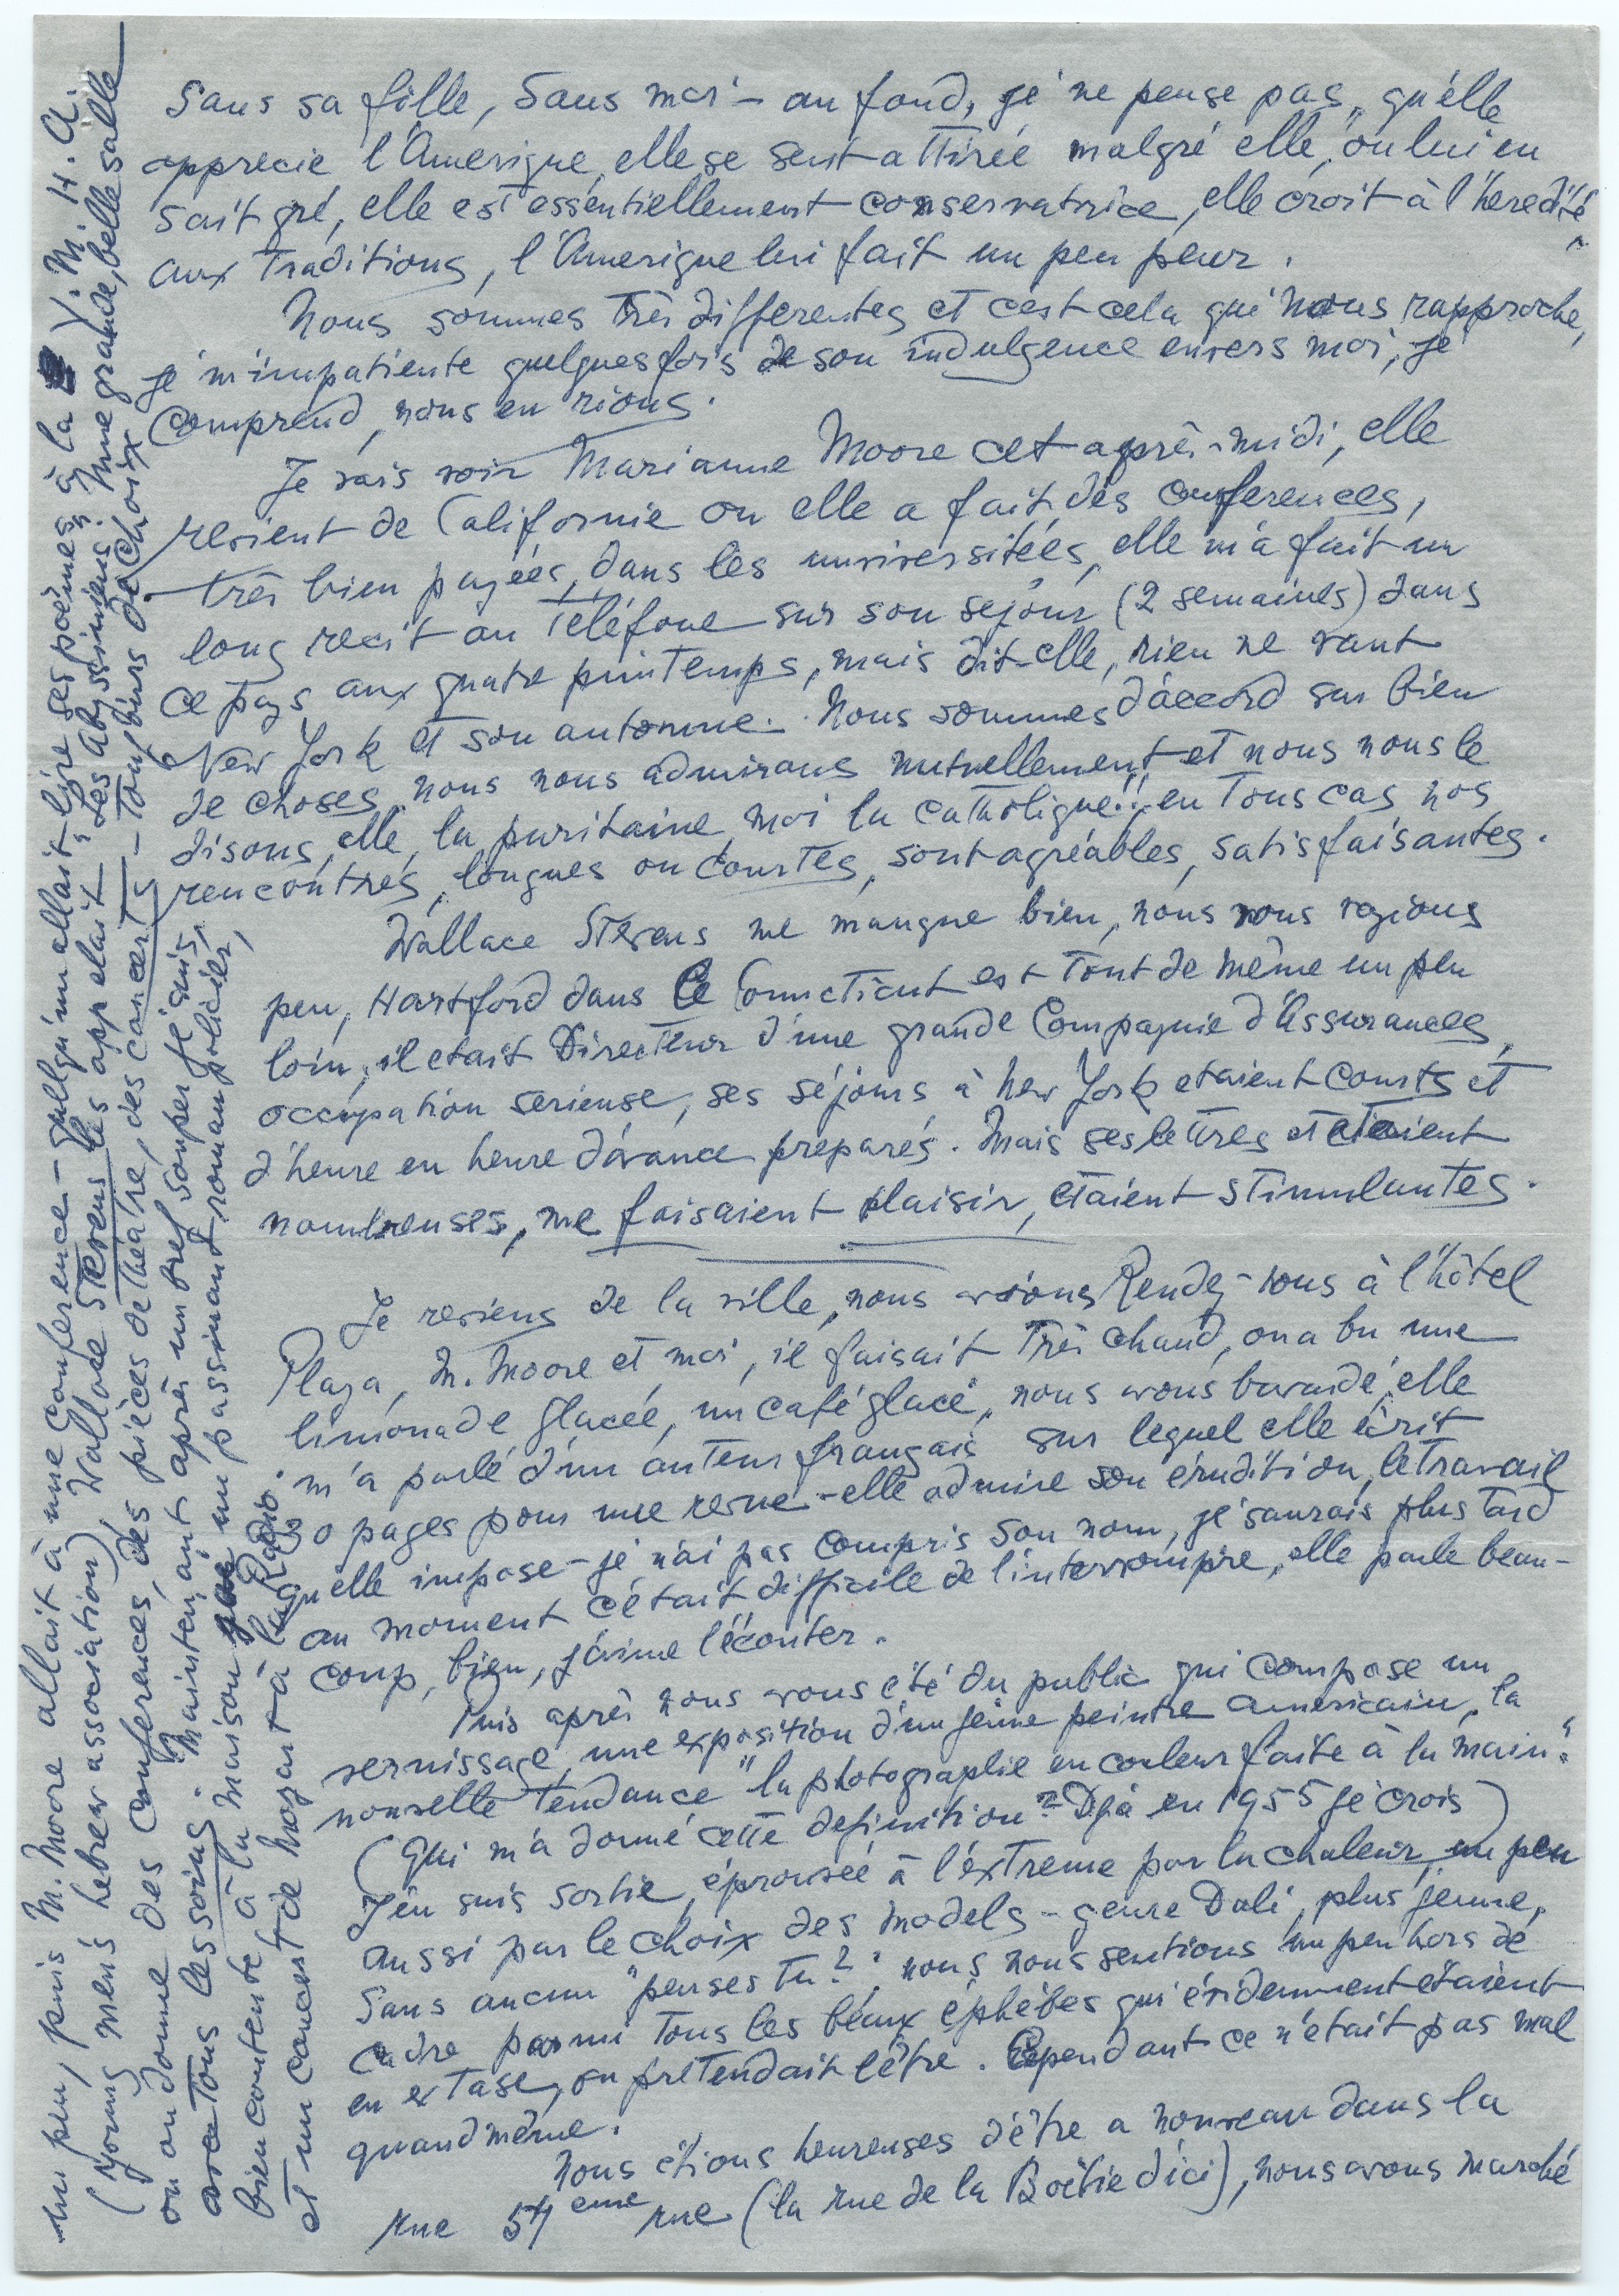 Sans sa fille, Sans moi – au fond, je ne pense pas, qu'elle
apprecie l'Amerique, elle se sent attirée malgré elle, on lui en
sait gré, elle est essentiellement conservatrice, elle croit à l'heredité,
aux traditions, l'Amerique lui fait un peu peur.
Nous sommes très differentes et c'est cela qui nous rapproche,
je m'impatiente quelques fois de son indulgence envers moi, je
comprend, nous en rions.
Je vais voir Marianne Moore cet après-midi, elle
revient de Californie ou elle a fait des conferences,
très bien payées, dans les universitées, elle m'a fait un
long recit au teléfone sur son sejour (2 semaines) dans
ce pays aux quatre printemps, mais dit-elle, rien ne vaut
New York et son automne. Nous sommes d'accord sur bien
de choses, nous nous admirons mutuellement et nous nous le
disons, elle, la puritaine, moi la catholique!! en tous cas nos
rencontres, longues ou courtes, sont agréables, satisfaisantes.
Wallace Stevens me manque bien, nous nous voyions
peu, Hartford dans le Connecticut est tout de même un peu
loin, il etait Directeur d'une grande Compagnie d'Assurances,
occupation serieuse, ses séjours à New York etaient courts et
d'heure en heure d'avance preparés. Mais ses lettres etaient
nombreuses, me faisaient plaisir, etaient stimulantes.
Je reviens de la ville, nous avions Rendez-vous à l'hôtel
Plaza, M. Moore et moi, il faisait très chaud, on a bu une
limonade glacée, un café glacé, nous avons bavardé, elle
m'a parlé d'un auteur français sur lequel elle écrit
30 pages pour une revue – elle admire son érudition, le travail
qu'elle impose – je n'ai pas compris son nom, je saurais plus tard
au moment c'était difficile de l'interrompre, elle parle beau-
coup, bien, j'aime l'écouter.
Puis après nous avons été du public qui compose un
vernissage, une exposition d'un jeune peintre americain, la
nouvelle tendance "la photographie en couleur faite à la main".
(Qui m'a donné cette definition? Déjà en 1955 je crois)
J'en suis sortie, éprouvée à l'extreme par la chaleur, un peu
aussi par le choix des models – genre Dali, plus jeune,
sans aucun "penses tu?", nous nous sentions un peu hors de
cadre parmi tous les beaux éphèbes qui évidemment etaient
en extase, on pretendait l'être. Cependant ce n'était pas mal
quand même.
Nous étions heureuses d'être a nouveau dans la
rue 57 eme rue (la rue de la Boëtie d'ici), nous avons marché
un peu, puis M. Moore allait à une conference – quelqu'un allait lire ses poèmes à la Y. M. H. A.
(young men's hebrew association), Wallace Stevens les appelait "Les Abyssiniens". Une grande, belle salle
ou on donne des conferences, des pièces de theatre, des concerts – toujours de choix
avec tous les soins. Maintenant après un bref souper je suis,
bien contente, à la maison un passionant roman policier,
et un concert de Mozart à la Radio.